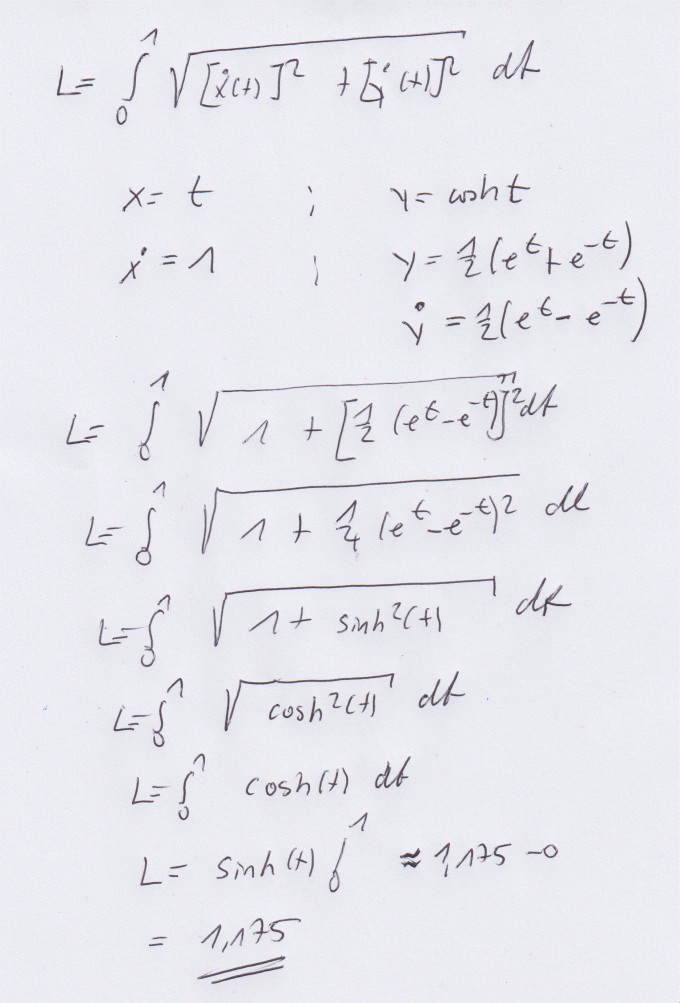 L= ∫₀¹ √([ẋ(t)]² + [ẏ(t)]²) dt
x= t ; y= cosh t
ẋ = 1 ; y = ½(e^t + e^-t)
ẏ = ½(e^t - e^-t)
L= ∫₀¹ √(1 + [½ (e^t - e^-t)]²) dt
L= ∫₀¹ √(1 + ¼ (e^t - e^-t)²) dt
L= ∫₀¹ √(1 + sinh²(t)) dt
L= ∫₀¹ √(cosh²(t)) dt
L= ∫₀¹ cosh(t) dt
L= sinh(t) ∫₀¹ ≈ 1,175 - 0
= 1,175